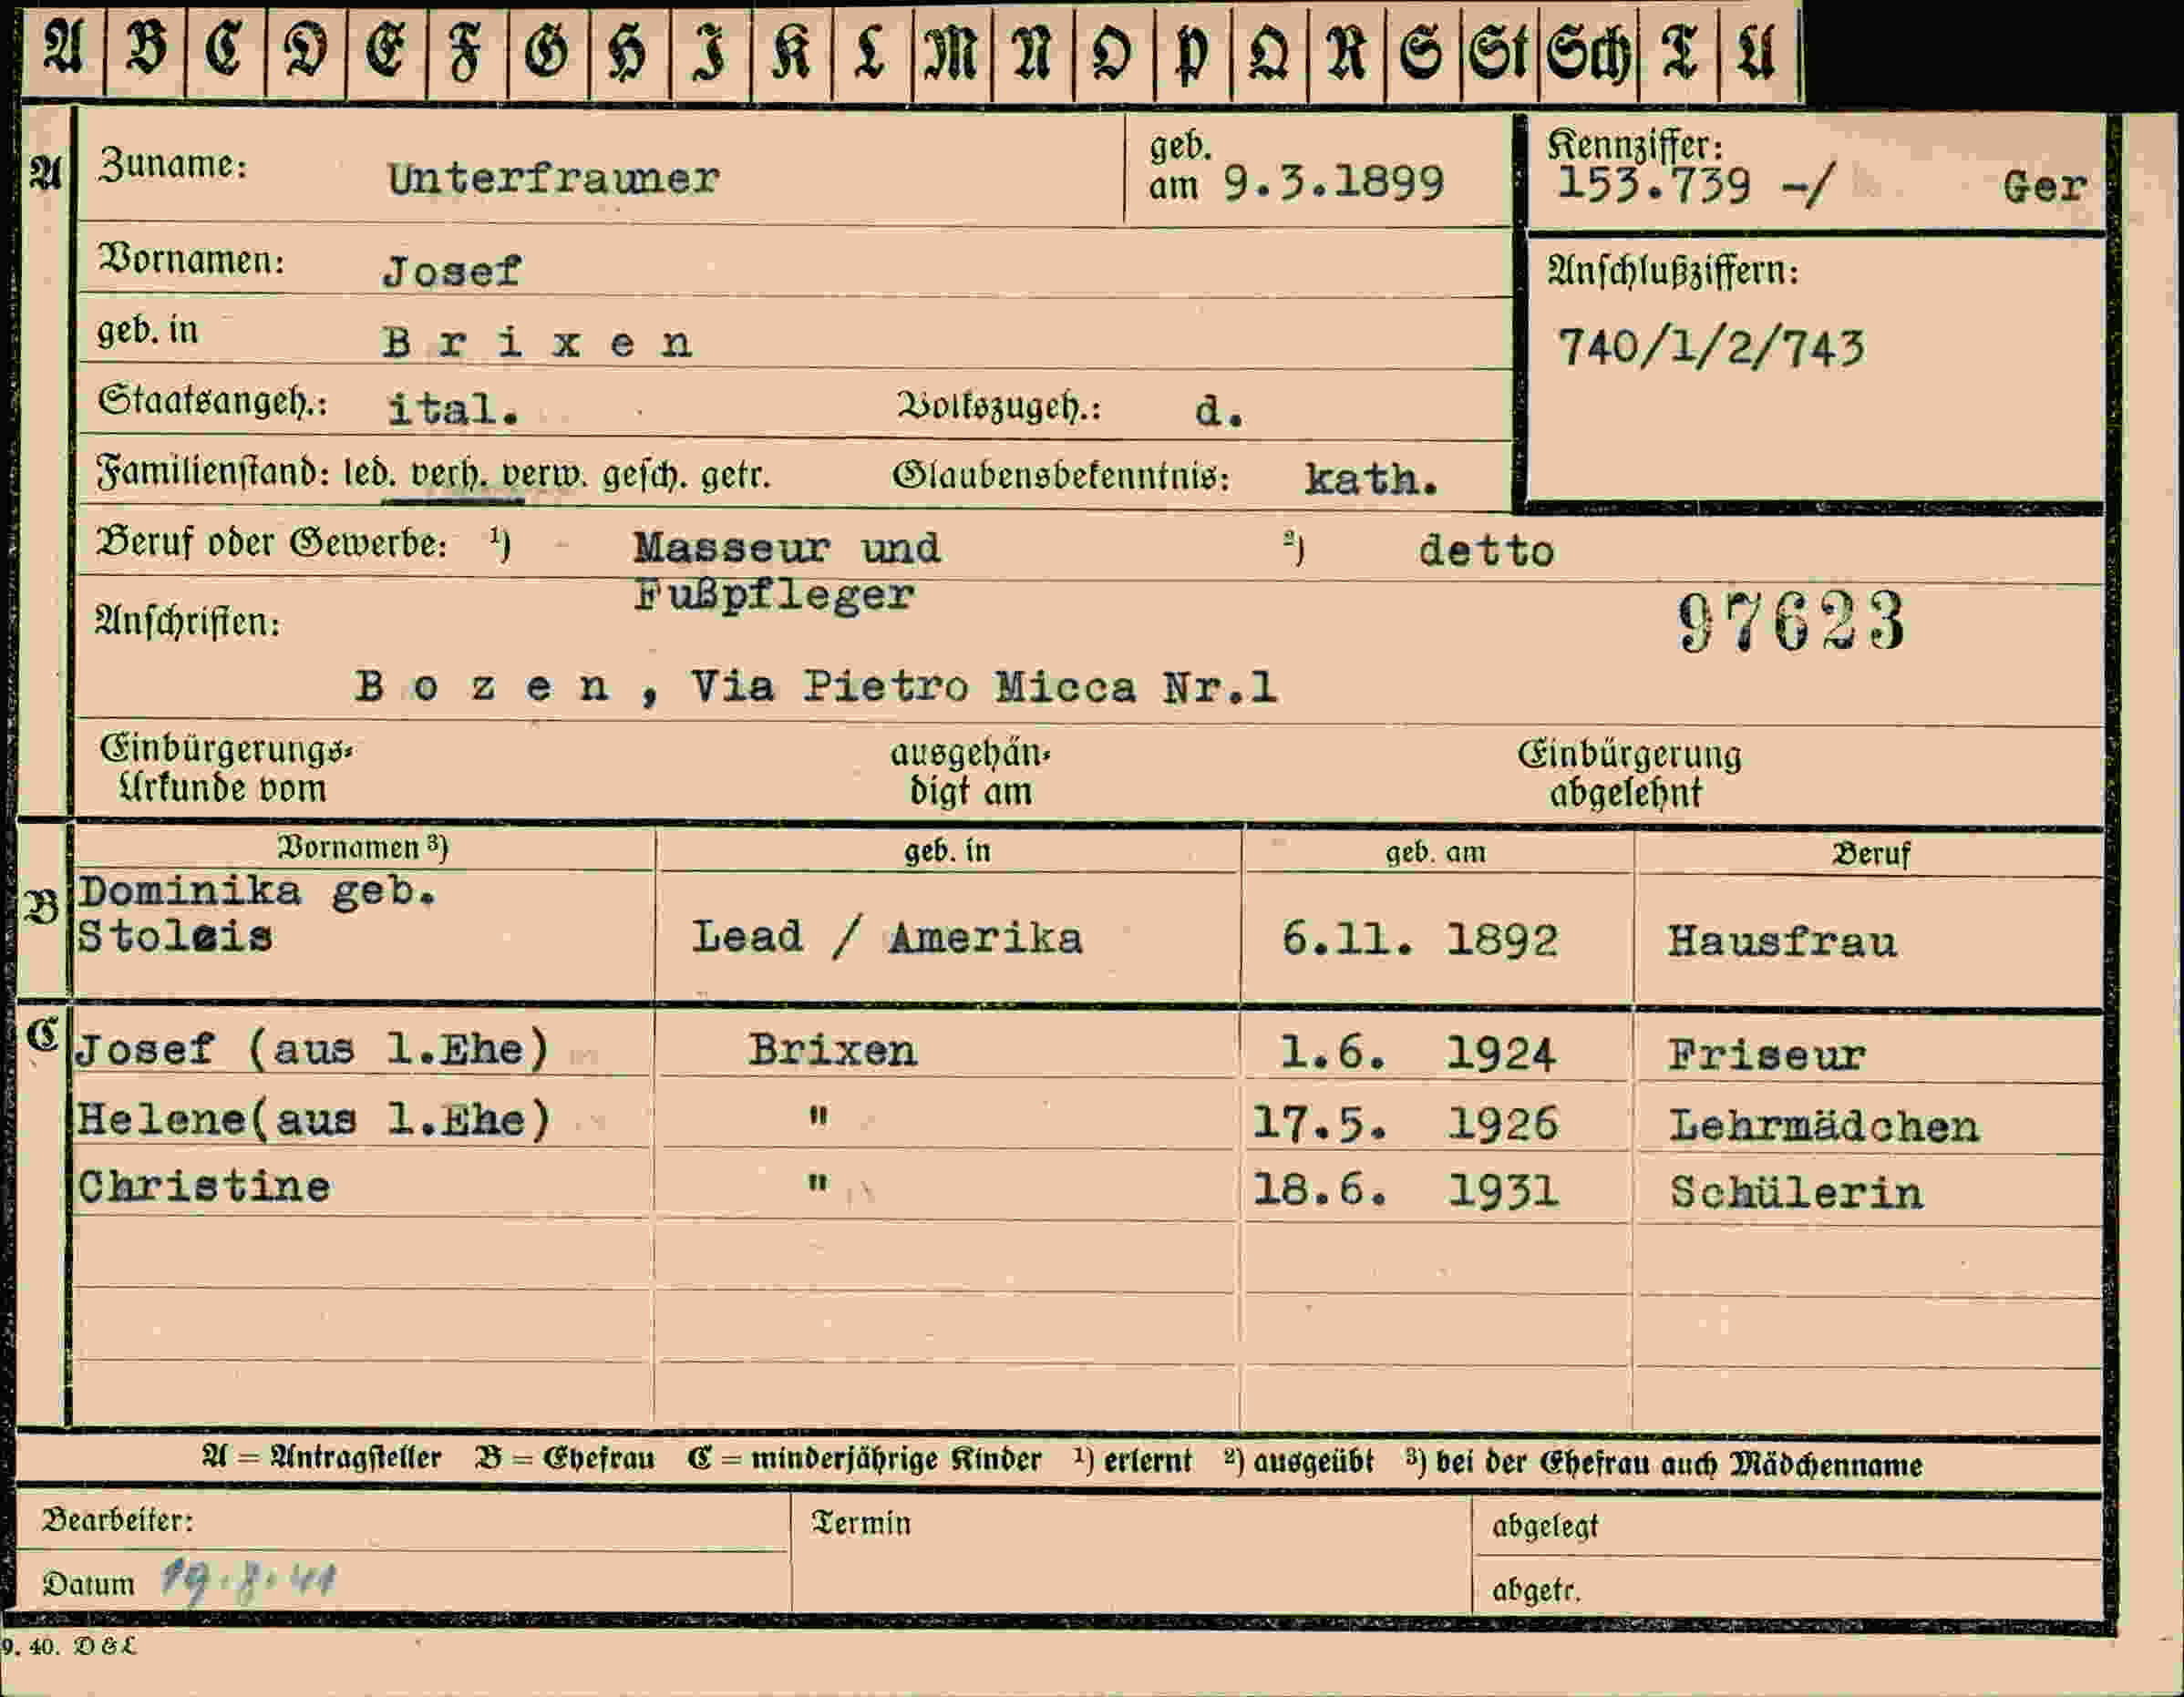 A B C D E F G H I K L M N O P Q R S St Sch T U
A Zuname: Unterfrauner geb. am 9.3.1899 Kennziffer: 153.739 -/ Ger
Vornamen: Josef Anschlußziffern:
geb. in Brixen 740/1/2/743
Staatsangeh.: ital. Volkszugeh.: d.
Familienstand: led. verh. verw. gesch. getr. Glaubensbekenntnis: kath.
Beruf oder Gewerbe: 1) Masseur und 2) detto
Fußpfleger
Anschriften: 97623
Bozen, Via Pietro Micca Nr.1
Einbürgerungs- ausgehän- Einbürgerung
Urkunde vom digt am abgelehnt
Vornamen 3) geb. in geb. am Beruf
B Dominika geb.
Lead / Amerika 6.11. 1892 Hausfrau
C Josef (aus 1.Ehe) Brixen 1.6. 1924 Friseur
Helene(aus 1.Ehe) " 17.5. 1926 Lehrmädchen
Christine " 18.6. 1931 Schülerin
A = Antragsteller B = Ehefrau C = minderjährige Kinder 1) erlernt 2) ausgeübt 3) bei der Ehefrau auch Mädchenname
Bearbeiter: Termin abgelegt
Datum 19.8.41 abgetr.
9. 40. D & L